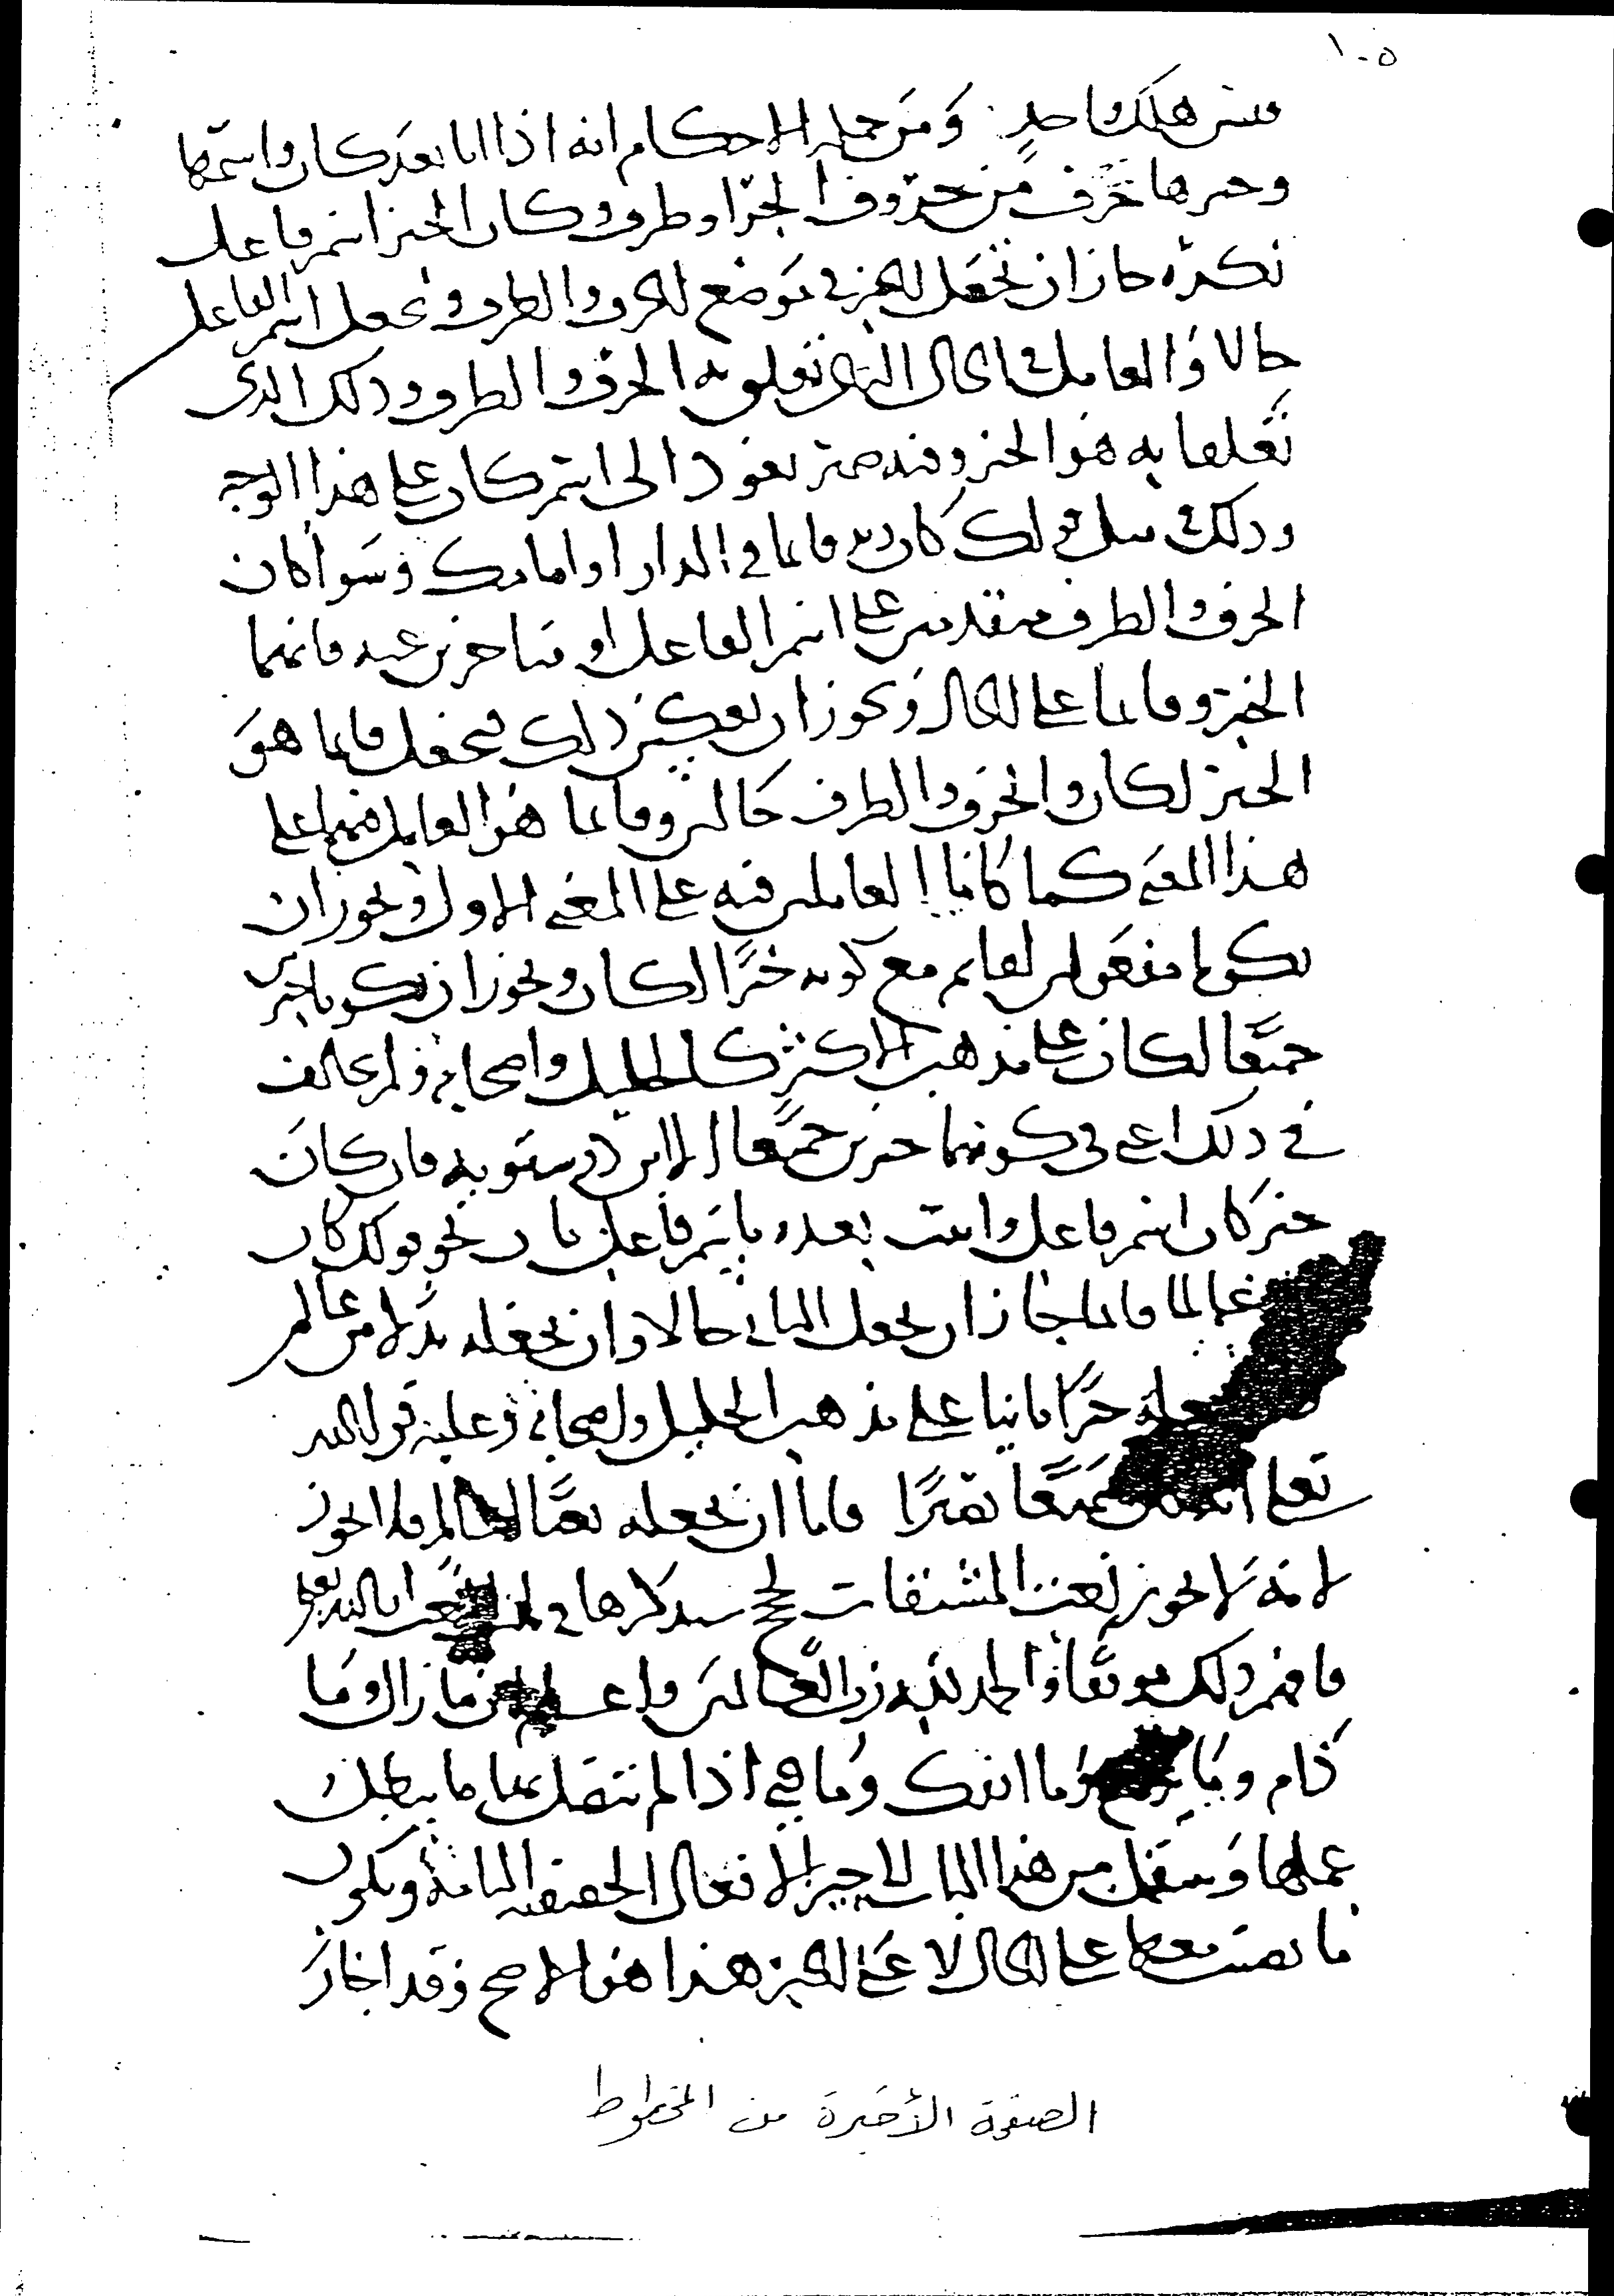 ١٠٥
هلك واحد ومن جملة الاحكام انه اذا اتا بعد كان واسمها
وخبرها حرف من حروف الجر او ظرف وكان الخبر اسم فاعل
نكرة جاز ان تجعل الخبر في موضع الحرف والظرف وتجعل اسم الفاعل
حالا والعامل في الحال الذي تعلق به الحرف والظرف وذلك الذي
تعلقا به هو الخبر وفيه ضمير يعود الى اسم كان على هذا الوجه
وذلك مثل قولك كان زيد قائما في الدار او امامك وسوا كان
الحرف والظرف متقدمين على اسم الفاعل او متاخرين عنه فانهما
الخبر وقائما على الحال ويجوز ان يعكس ذلك فتجعل قائما هو
الخبر لكان والحرف والظرف حالين وقائما هو العامل فيهما على
هذا المعنى كما كانا العاملين فيه على المعنى الاول ويجوز ان
يكونا مفعولين لقائم مع كونه خبرًا لكان ويجوز ان يكونا خبرين
جميعًا لكان على مذهب الاكثر كالخليل واصحابه ولم يخالف
في ذلك اعني في كونهما خبرين جميعًا الا ابن درستويه فان كان
خبر كان اسم فاعل واتيت بعده باسم فاعل ثان نحو قولك كان
عالما قائما جاز ان تجعل الثاني حالا وان تجعله بدلا من عالم
خبرًا ثانيا على مذهب الخليل واصحابه وعليه قول الله
تعلى سميعًا بصيرًا فاما ان تجعله نعتًا لعالم فلا يجوز
لانه لا يجوز نعت المشتقات لحجج سنذكرها في النعت ان شا الله تعلى
فافهم ذلك موفقا والحمد لله رب العالمين واعلم ان ما زال وما
دام وما برح وما انفك وما فتئ اذا لم تتصل بما ما يبطل
عملها وتنتقل من هذا الباب الى حيز الافعال الحقيقية التامة ويكون
ما نصبت معها على الحال لا على الخبر هذا هو الاصح وقد اجاز
الصفحة الأخيرة من المخطوط